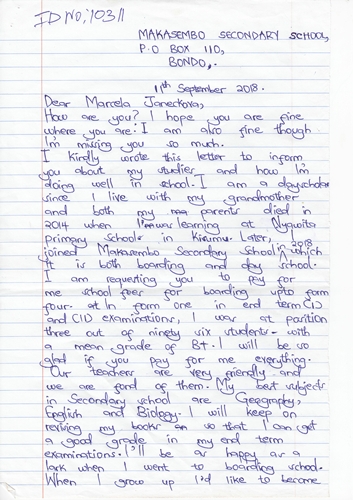 ID NO; 10311
MAKASEMBO SECONDARY SCHOOL,
P.O BOX 110,
BONDO,.
11th September 2018.
Dear Marcela Janeckova,
How are you? I hope you are fine
where you are. I am also fine though
I'm missing you so much.
I kindly wrote this letter to inform
you about my studies and how I'm
doing well in school. I am a dayscholar
since I live with my grandmother
and both my parents died in
2014 when I was learning at Nyawita
primary school in Kisumu. Later, in 2018
joined Makasembo Secondary School which
it is both boarding and day school.
I am requesting you to pay for
me school fees for boarding upto form
four. In form one in end term
and CID examinations, I was at position
three out of ninety six students with
a mean grade of B+. I will be so
glad if you pay for me everything.
Our teachers are very friendly and
we are fond of them. My best subjects
in Secondary school are Geography,
English and Biology. I will keep on
reviving my books so that I can get
a good grade in my end term
examinations. I'll be as happy as a
lark when I went to boarding school.
When I grow up I'd like to become